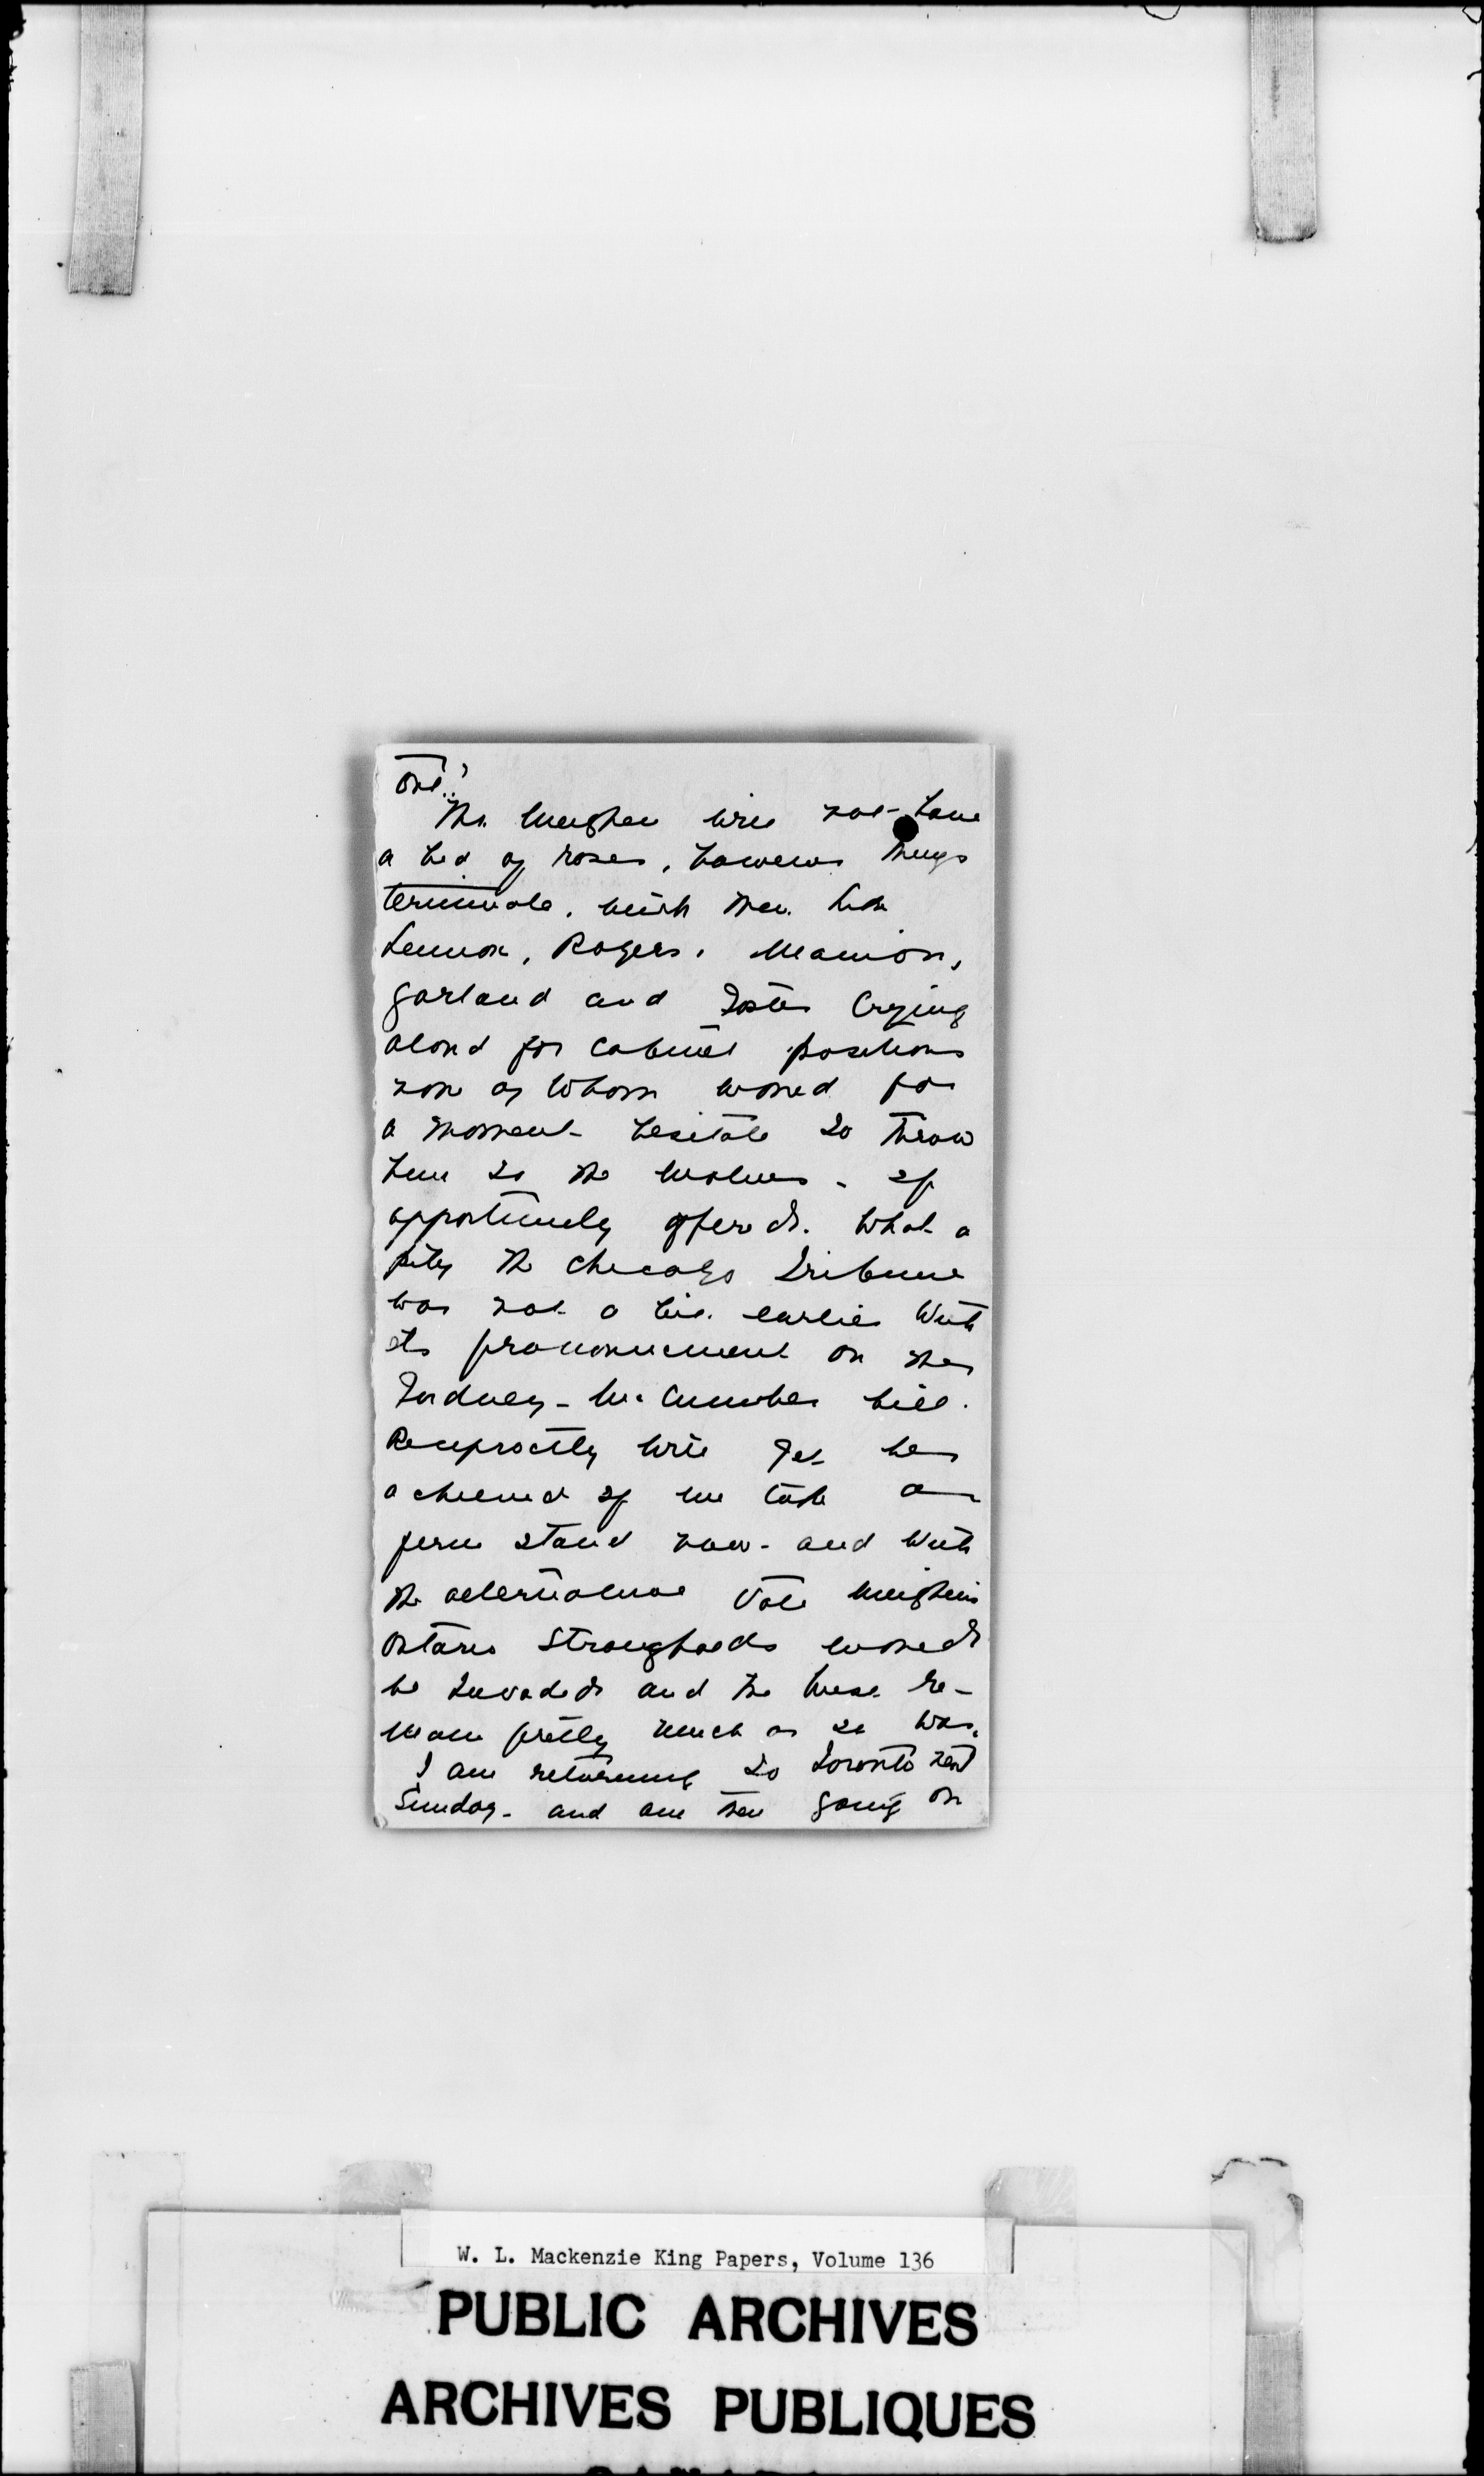 one!!
Mr. Meighen will not have
a bed of roses, however things
terminate, with men like
Lennox, Rogers, Manion,
Garland and Foster crying
aloud for cabinet positions
none of whom would for
a moment hesitate to throw
him to the wolves - if
opportunity offered. What a
pity the Chicago Tribune
was not a bit earlier with
its pronouncement on the
Fordney - McCumber bill.
Reciprocity will yet be
achieved if we take a
firm stand now - and with
the alternative vote Meighen's
Ontario strongholds would
be invaded and the West re-
main pretty much as it was.
I am returning to Toronto next
Sunday - and am then going on
W. L. Mackenzie King Papers, Volume 136
PUBLIC ARCHIVES
ARCHIVES PUBLIQUES